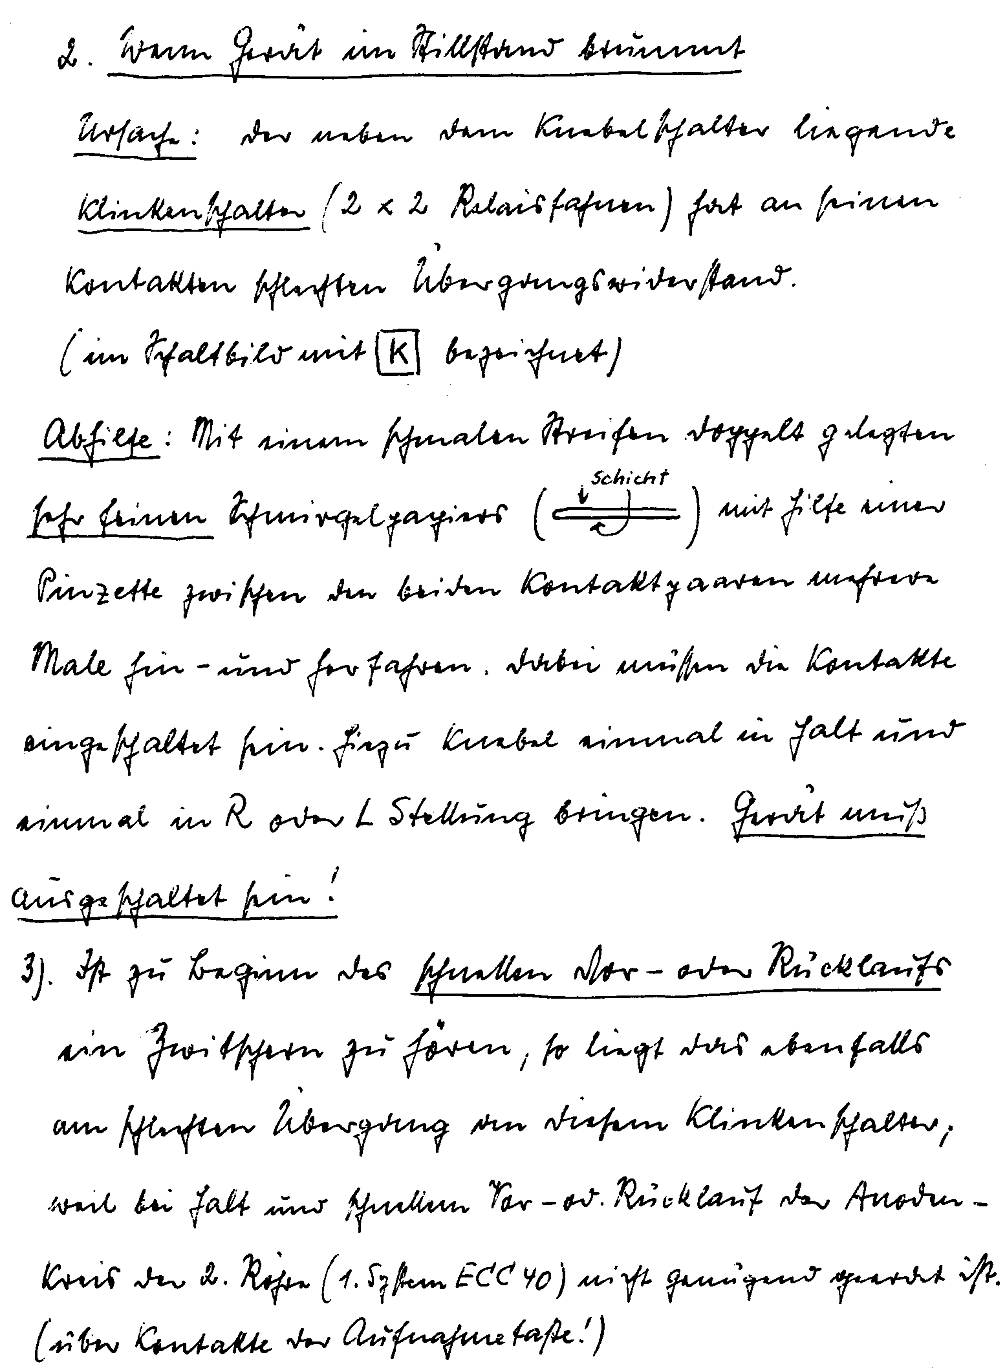 2. Wenn Gerät im Stillstand brummt
Ursache: der neben dem Knebelschalter liegende
Klinkenschalter (2 x 2 Relaisfahnen) hat an seinen
Kontakten schlechten Übergangswiderstand.
(im Schaltbild mit K bezeichnet)
Abhilfe: Mit einem schmalen Streifen doppelt gelegten
Schicht
sehr feinen Schmirgelpapiers ( ) mit Hilfe einer
Pinzette zwischen den beiden Kontaktpaaren mehrere
Male hin- und herfahren. Dabei müssen die Kontakte
eingeschaltet sein. Hiezu Knebel einmal in Halt und
einmal in R oder L Stellung bringen. Gerät muß
ausgeschaltet sein!
3). Ist zu Beginn des schnellen Vor- oder Rücklaufs
ein Zwitschern zu hören, so liegt das ebenfalls
am schlechten Übergang an diesem Klinkenschalter,
weil bei Halt und schnellem Vor- od. Rücklauf der Anoden-
Kreis der 2. Röhre (1. System ECC 40) nicht genügend geerdet ist.
(über Kontakte der Aufnahmetaste!)